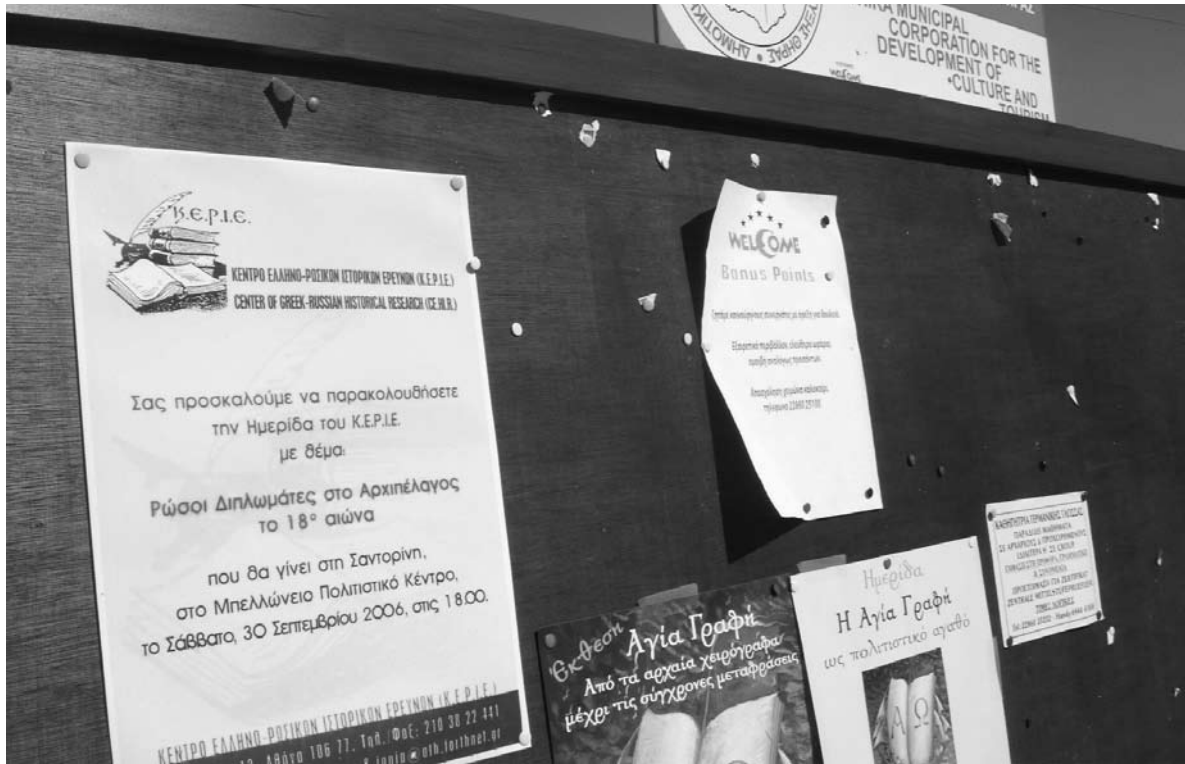 ΔΗΜΟΤΙΚΗ
ΘΗΡΑΣ
MUNICIPAL
CORPORATION FOR THE
DEVELOPMENT OF
CULTURE AND
TOURISM
Κ.Ε.Ρ.Ι.Ε.
ΚΕΝΤΡΟ ΕΛΛΗΝΟ-ΡΩΣΙΚΩΝ ΙΣΤΟΡΙΚΩΝ ΕΡΕΥΝΩΝ (Κ.Ε.Ρ.Ι.Ε.)
CENTER OF GREEK-RUSSIAN HISTORICAL RESEARCH (CE.HI.R.)
Σας προσκαλούμε να παρακολουθήσετε
την Ημερίδα του Κ.Ε.Ρ.Ι.Ε.
με θέμα:
Ρώσοι Διπλωμάτες στο Αρχιπέλαγος
το 18° αιώνα
που θα γίνει στη Σαντορίνη,
στο Μπελλώνειο Πολιτιστικό Κέντρο,
το Σάββατο, 30 Σεπτεμβρίου 2006, στις 18.00.
ΚΕΝΤΡΟ ΕΛΛΗΝΟ-ΡΩΣΙΚΩΝ ΙΣΤΟΡΙΚΩΝ ΕΡΕΥΝΩΝ (Κ.Ε.Ρ.Ι.Ε.)
Αθήνα 106 77, Τηλ./Φαξ: 210 38 22 441
WELCOME
Bonus Points
για δουλειά.
Εξαιρετικό περιβάλλον,
τηλέφωνο
Έκθεση
Αγία Γραφή
Από τα αρχαία χειρόγραφα
μέχρι τις σύγχρονες μεταφράσεις
Ω
Ημερίδα
Η Αγία Γραφή
ως πολιτιστικό αγαθό
Α Ω
ΚΑΘΗΓΗΤΡΙΑ ΓΕΡΜΑΝΙΚΗΣ ΓΛΩΣΣΑΣ
ΠΑΡΑΔΙΔΕΙ ΜΑΘΗΜΑΤΑ
ΣΕ ΑΡΧΑΡΙΟΥΣ & ΠΡΟΧΩΡΗΜΕΝΟΥΣ
ΠΡΟΕΤΟΙΜΑΣΙΑ ΓΙΑ ZERTIFIKAT